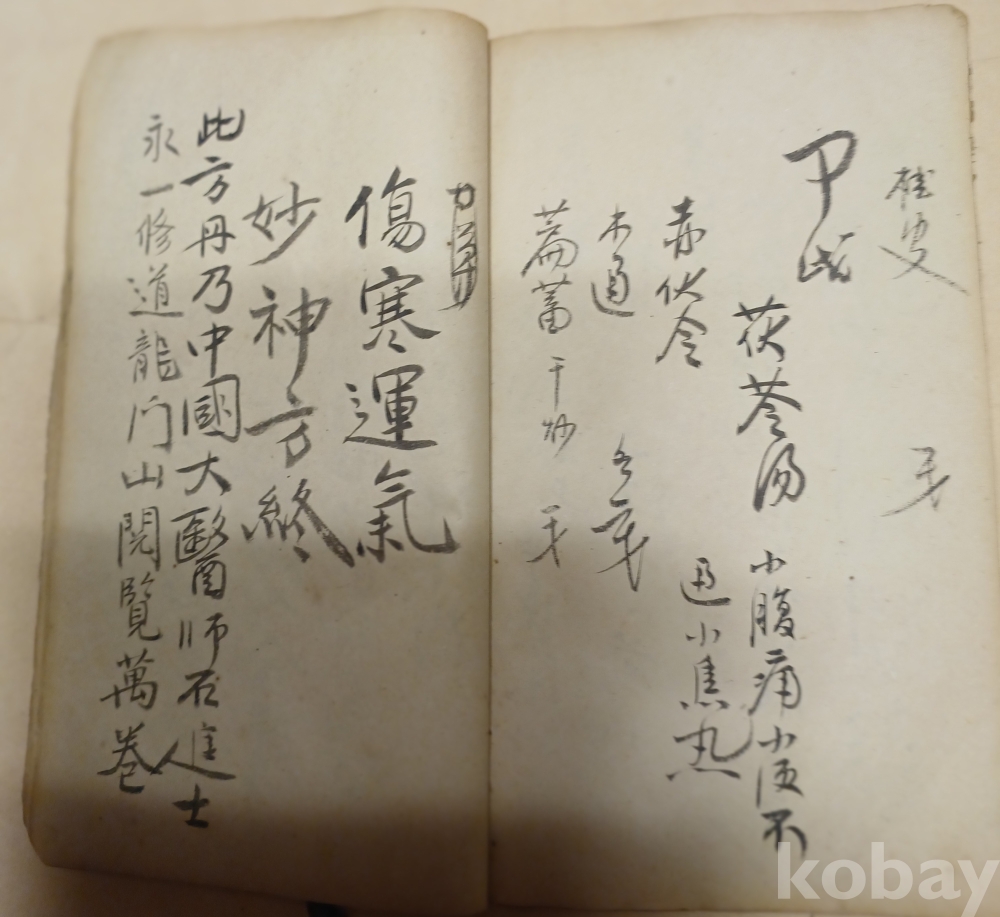 桂皮
甲戌
茯苓湯 小腹痛小便不
通小焦热
赤伏令
木通 各
萹蓄 干炒
傷寒運氣
妙神方終
此方丹乃中國大醫師石進士
永一修道龍门山閱覽萬卷
kobay